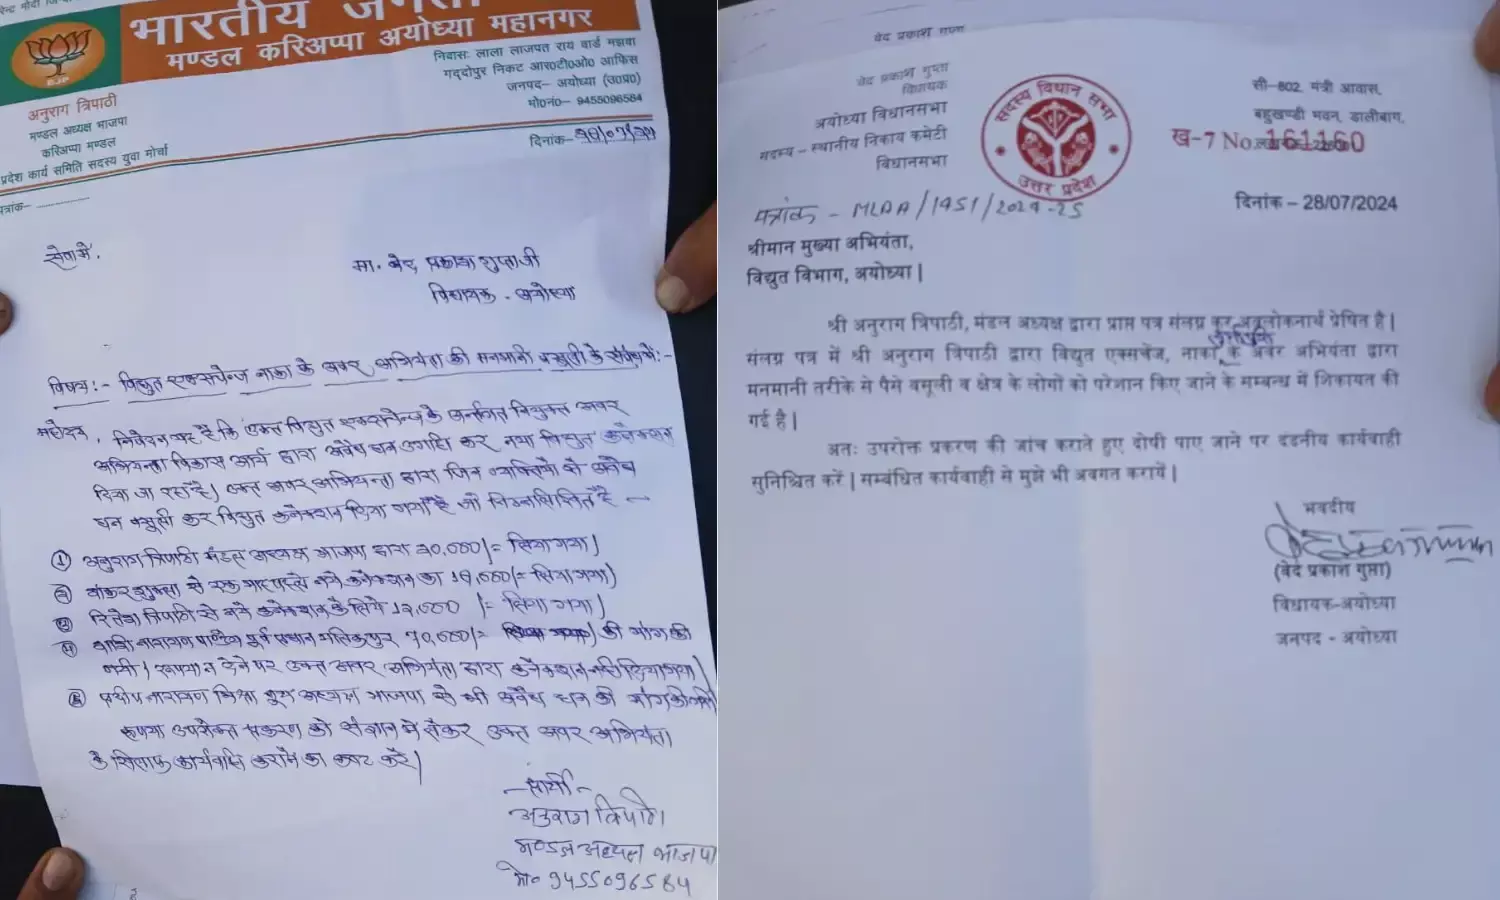 भारतीय जनता
मण्डल करिअप्पा अयोध्या महानगर
BJP
निवासः लाला लाजपत राय वार्ड मझवा
गद्दोपुर निकट आर०टी०ओ० आफिस
जनपद– अयोध्या (उ०प्र०)
मो०नं०– 9455096584
अनुराग त्रिपाठी
मण्डल अध्यक्ष भाजपा
करिअप्पा मण्डल
प्रदेश कार्य समिति सदस्य युवा मोर्चा
दिनांक–
पत्रांक–
सेवा में,
मा. वेद प्रकाश गुप्ता जी
विधायक - अयोध्या
विषय:- विद्युत एक्सचेन्ज नाका के अवर अभियंता की मनमानी वसूली के संबंध में:-
महोदय, निवेदन यह है कि उक्त विद्युत एक्सचेन्ज के अन्तर्गत नियुक्त अवर
अभियन्ता विकास आर्य द्वारा अवैध धन उगाही कर नया विद्युत कनेक्शन
दिया जा रहा है। उक्त अवर अभियन्ता द्वारा जिन व्यक्तियों से अवैध
धन वसूली कर विद्युत कनेक्शन दिया गया है जो निम्नलिखित है –
① अनुराग त्रिपाठी मंडल अध्यक्ष भाजपा द्वारा लिया गया।
② शुक्ला से एक माह पहले नये कनेक्शन का लिया गया)
③ रितेश त्रिपाठी से नये कनेक्शन के लिये लिया गया)
④ नारायण पाण्डेय पूर्व प्रधान की मांग की
गयी। रूपया न देने पर उक्त अवर अभियंता द्वारा कनेक्शन नहीं दिया गया।
⑤ प्रदीप नारायण मिश्रा अध्यक्ष भाजपा से भी अवैध धन की मांग की गयी
कृपया उपरोक्त प्रकरण को संज्ञान में लेकर उक्त अवर अभियंता
के खिलाफ कार्यवाही कराने का कष्ट करें।
प्रार्थी
अनुराग त्रिपाठी
मण्डल अध्यक्ष भाजपा
मो० 9455096584
वेद प्रकाश गुप्ता
वेद प्रकाश गुप्ता
विधायक
अयोध्या विधानसभा
सदस्य – स्थानीय निकाय कमेटी
विधानसभा
सदस्य विधान सभा
उत्तर प्रदेश
सी–802, मंत्री आवास,
बहुखण्डी भवन, डालीबाग,
ख-7 No. 161160
पत्रांक - MLAA/1951/2024-25
दिनांक – 28/07/2024
श्रीमान मुख्या अभियंता,
विद्युत विभाग, अयोध्या |
श्री अनुराग त्रिपाठी, मंडल अध्यक्ष द्वारा प्राप्त पत्र संलग्न कर अवलोकनार्थ प्रेषित है |
संलग्न पत्र में श्री अनुराग त्रिपाठी द्वारा विद्युत एक्सचेंज, नाका, के अवर अभियंता द्वारा
मनमानी तरीके से पैसे वसूली व क्षेत्र के लोगों को परेशान किए जाने के सम्बन्ध में शिकायत की
गई है |
अतः उपरोक्त प्रकरण की जांच कराते हुए दोषी पाए जाने पर दंडनीय कार्यवाही
सुनिश्चित करें | सम्बंधित कार्यवाही से मुझे भी अवगत करायें |
भवदीय
(वेद प्रकाश गुप्ता)
विधायक-अयोध्या
जनपद - अयोध्या